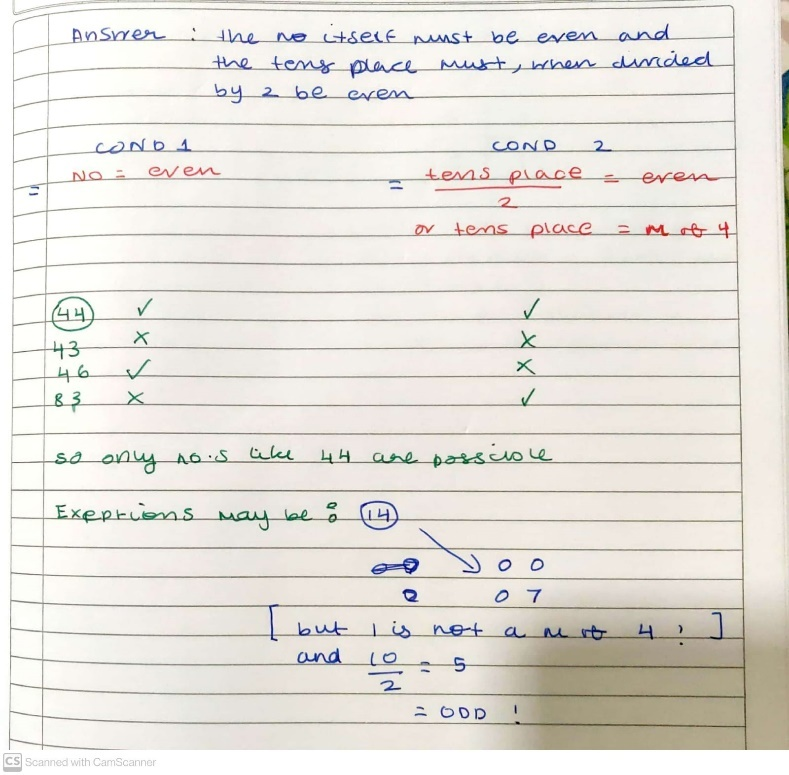 Answer : the no itself must be even and
the tens place must, when divided
by 2 be even
COND 1
NO = even
=
COND 2
= tens place = even
2
or tens place = M of 4
44 ✓ ✓
43 × ×
46 ✓ ×
83 × ✓
so only no.s like 44 are possible
Exeptions may be : 14
0 0
2 0 7
[ but 1 is not a m of 4 ! ]
and 10 = 5
2
= ODD !
CS Scanned with CamScanner